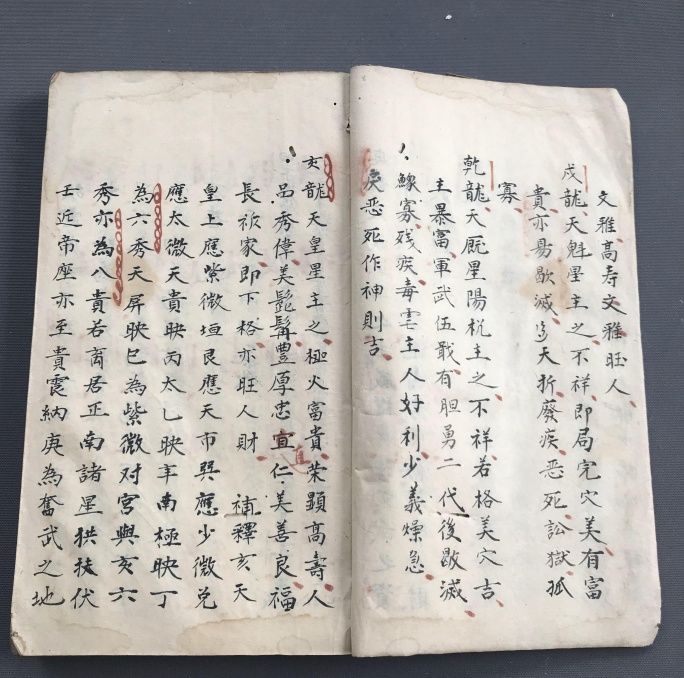 文雅高寿文雅旺人
戍龍天魁星主之不祥即局完穴美有富
貴亦易歇滅多夭折廢疾恶死訟獄孤
寡
乾龍天厩星陽枕主之不祥若格美穴吉
主暴富軍武伍戢有胆勇二代後歇滅
鰥寡残疾毒主人好利少義燥急
疾恶死作神則吉
亥龍天皇星主之極火富貴荣顕高壽人
品秀偉美髭髯豊厚忠宜仁美善良福
直
長祿家即下格亦旺人財 補釋亥天
皇上應紫微垣艮應天市巽應少微兑
應太微天貴映丙太乙映辛南極映丁
為六秀天屏映巳為紫微对宮與亥六
秀亦為八貴若啇居正南諸星拱扶伏
壬近帝座亦至貴震納庚為奮武之地